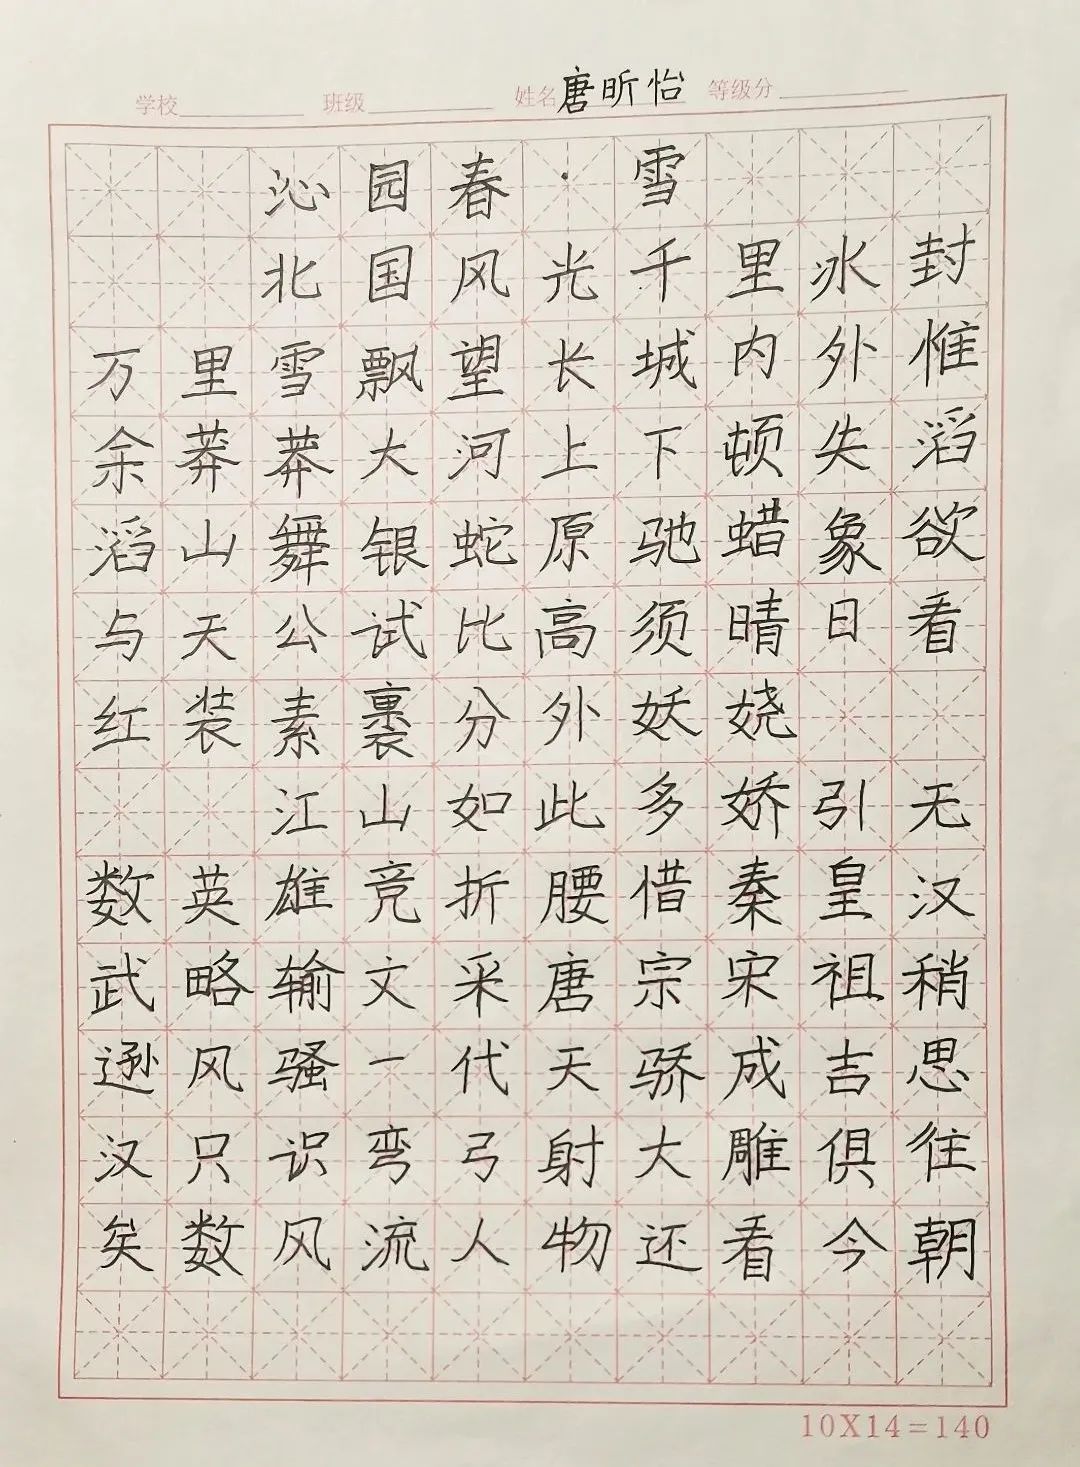 学校 班级 姓名 唐昕怡 等级分
沁园春·雪
北国风光千里冰封
万里雪飘望长城内外惟
余莽莽大河上下顿失滔
滔山舞银蛇原驰蜡象欲
与天公试比高须晴日看
红装素裹分外妖娆
江山如此多娇引无
数英雄竞折腰惜秦皇汉
武略输文采唐宗宋祖稍
逊风骚一代天骄成吉思
汉只识弯弓射大雕俱往
矣数风流人物还看今朝
10X14=140